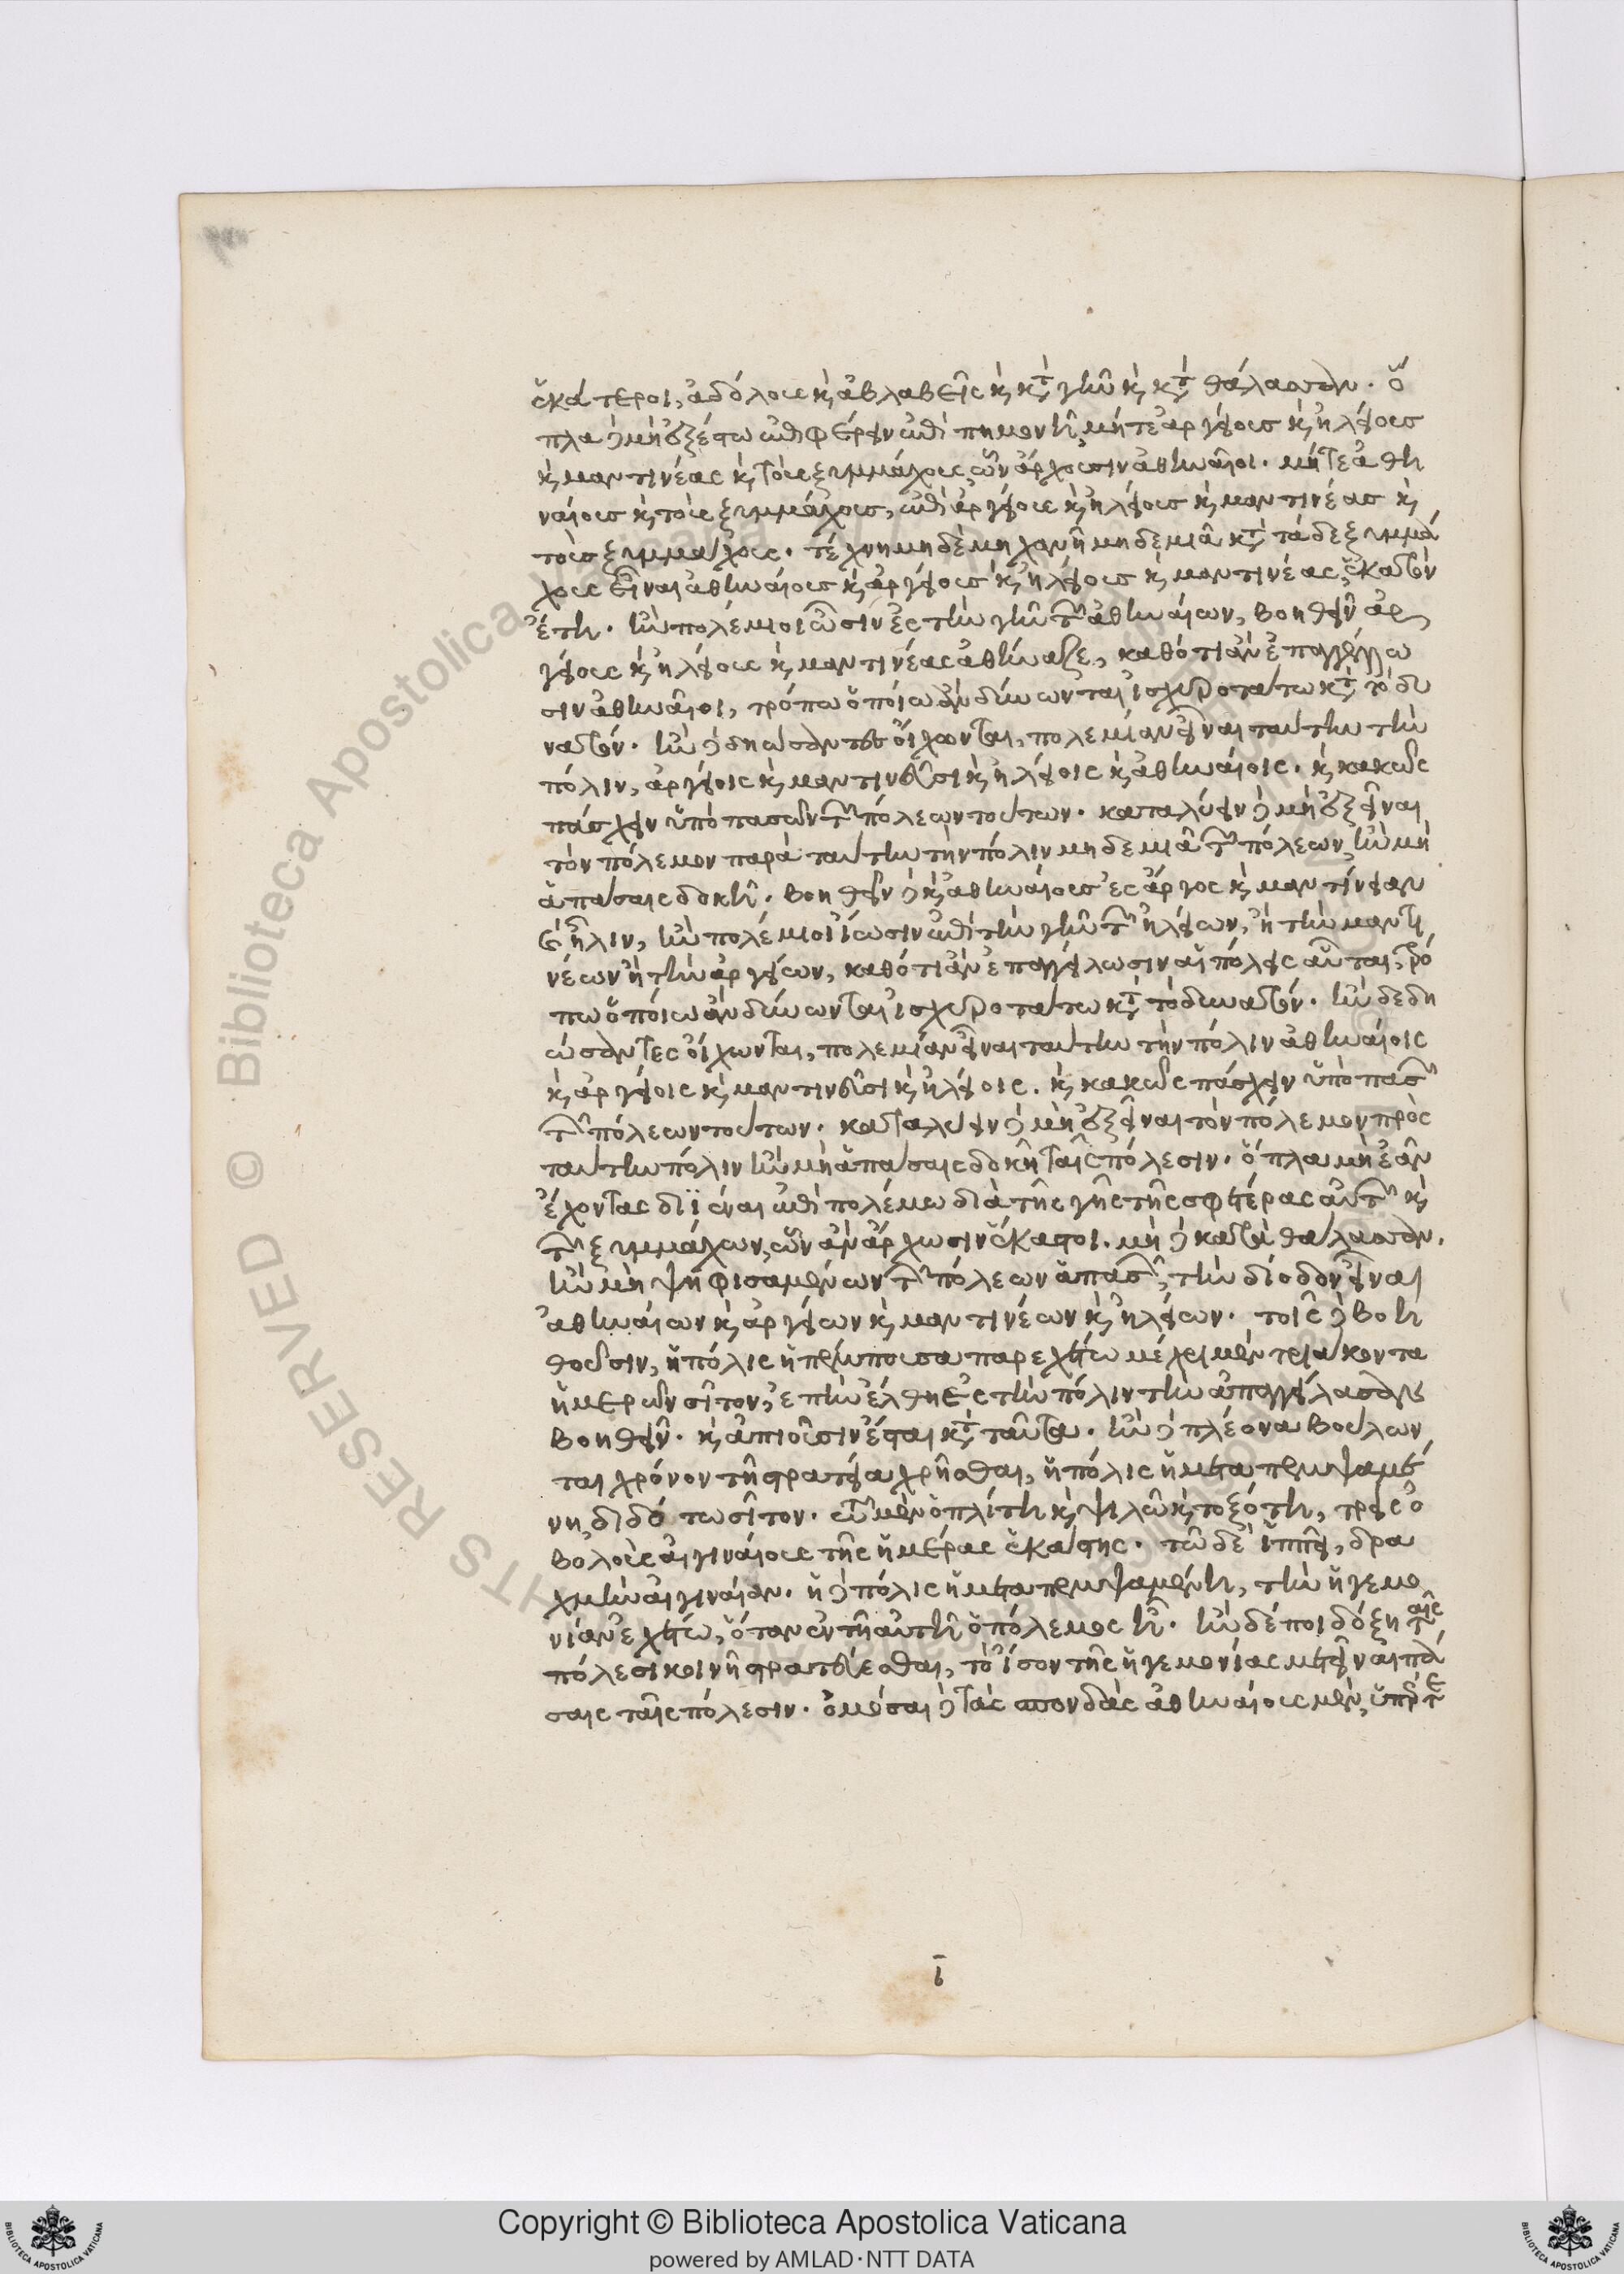 ἑκάτεροι, ἀδόλους κ̀ ἀβλαβεῖς κ̀ κτ̀ γῆν κ̀ κτ̀ θάλασσαν. ὅ
πλα δὲ μὴ ἐξέστω ἐπιφέρειν ἐπὶ πημονῆ, μήτε ἀργείους κ̀ ἠλείους
κ̀ μαντινέας κ̀ τοὺς ξυμμάχους ὧν ἄρχουσιν ἀθηναῖοι. μήτε ἀθη
ναίους κ̀ τοὺς ξυμμάχους, ἐπὶ ἀργείους κ̀ ἠλείους κ̀ μαντινέας κ̀
τοὺς ξυμμάχους. τέχνη μηδὲ μηχανῆ μηδεμιᾶ κτ̀ τάδε ξυμμά
χους εἶναι ἀθηναίους κ̀ ἀργείους κ̀ ἠλείους κ̀ μαντινέας, ἑκατὸν
ἔτη. ἢν πολέμιοι ὦσιν ἐς τὴν γῆν τῶν ἀθηναίων, βοηθεῖν ἀρ
γείους κ̀ ἠλείους κ̀ μαντινέας ἀθήναζε, καθότι ἂν ἐπαγγέλλω
σιν ἀθηναῖοι, τρόπω ὁποίω ἂν δύνωνται ἰσχυροτάτω κτ̀ τὸ δυ
νατόν. ἢν δὲ δηώσαντες οἴχωνται, πολεμίαν εἶναι ταύτην τὴν
πόλιν, ἀργείοις κ̀ μαντινεῦσι κ̀ ἠλείοις κ̀ ἀθηναίοις. κ̀ κακῶς
πάσχειν ὑπὸ πασῶν τῶν πόλεων τούτων. καταλύειν δὲ μὴ ἐξεῖναι
τὸν πόλεμον παρὰ ταύτην τὴν πόλιν μηδεμιᾶ τῶν πόλεων, ἢν μὴ
ἁπάσαις δοκῆ. βοηθεῖν δὲ κ̀ ἀθηναίους ἐς ἄργος κ̀ μαντίνειαν
κ̀ ἦλιν, ἢν πολέμιοι ἴωσιν ἐπὶ τὴν γῆν τῶν ἠλείων, ἢ τὴν μαντι
νέων ἢ τὴν ἀργείων, καθότι ἂν ἐπαγγέλωσιν αἱ πόλεις αὗται, τρό
πω ὁποίω ἂν δύνωνται ἰσχυροτάτω κτ̀ τὸ δυνατόν. ἢν δὲ δη
ώσαντες οἴχωνται, πολεμίαν εἶναι ταύτην τὴν πόλιν ἀθηναίοις
κ̀ ἀργείοις κ̀ μαντινεῦσι κ̀ ἠλείοις. κ̀ κακῶς πάσχειν ὑπὸ πασῶν
τῶν πόλεων τούτων. καταλύειν δὲ μὴ ἐξεῖναι τὸν πόλεμον πρὸς
ταύτην πόλιν ἢν μὴ ἁπάσαις δοκῆ ταῖς πόλεσιν. ὅπλα μὴ ἐᾶν
ἔχοντας διϊέναι ἐπὶ πολέμω διὰ τῆς γῆς τῆς σφετέρας αὐτῶν κ̀
τῶν ξυμμάχων, ὧν ἂν ἄρχωσιν ἕκαστοι. μὴ δὲ κατὰ θάλασσαν.
ἢν μὴ ψηφισαμένων τῶν πόλεων ἁπασῶν, τὴν δίοδον εἶναι
ἀθηναίων κ̀ ἀργείων κ̀ μαντινέων κ̀ ἠλείων. τοῖς δὲ βοη
θοῦσιν, ἡ πόλις ἡ πέμπουσα παρεχέτω μέχρι μὲν τριάκοντα
ἡμερῶν σῖτον, ἐπὴν ἔλθη ἐς τὴν πόλιν τὴν ἐπαγγείλασαν
βοηθεῖν. κ̀ ἀπιοῦσιν ἔσται κτ̀ ταῦτα. ἢν δὲ πλέονα βούλων
ται χρόνον τῆ στρατεία χρῆσθαι, ἡ πόλις ἡ μεταπεμψαμέ
νη, διδότω σῖτον. τῶ μὲν ὁπλίτη κ̀ ψιλῶ κ̀ τοξότη, τρεῖς ὀ
βολοὺς αἰγιναίους τῆς ἡμέρας ἑκάστης. τῶ δὲ ἱππεῖ, δρα
χμὴν αἰγιναίαν. ἡ δὲ πόλις ἡ μεταπεμψαμένη, τὴν ἡγεμο
νίαν ἐχέτω, ὅταν ἐν τῆ αὐτῆ ὁ πόλεμος ἦ. ἢν δέ ποι δόξη ταῖς
πόλεσι κοινῆ στρατεύεσθαι, τὸ ἴσον τῆς ἡγεμονίας μετεῖναι πά
σαις ταῖς πόλεσιν. ὀμόσαι δὲ τὰς σπονδὰς ἀθηναίους μὲν, ὑπέρ τε
ι̅
Copyright © Biblioteca Apostolica Vaticana
powered by AMLAD·NTT DATA